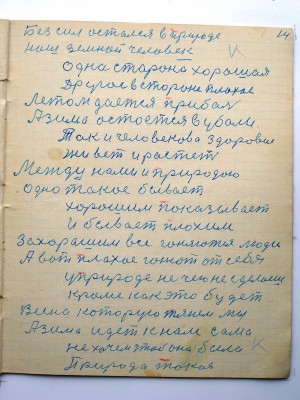 14
Без сил остался в природе
наш земной человек
Одна сторона хорошая
Другое в стороне плохое
Летом дается прибыль
А зима остоется в убыли
Так и человекова здоровья
живет и растет
Между нами и природою
Одно такое бывает
хорошим показывает
И бывает плохим
За хорашим все гоняются люди
А вот плахое гонют от себя
у природе не чего не сделаиш
Кроме как это будет
Вина которую тянем мы
А зима идет к нам сама
не хочем чтоб она была
Природа такая